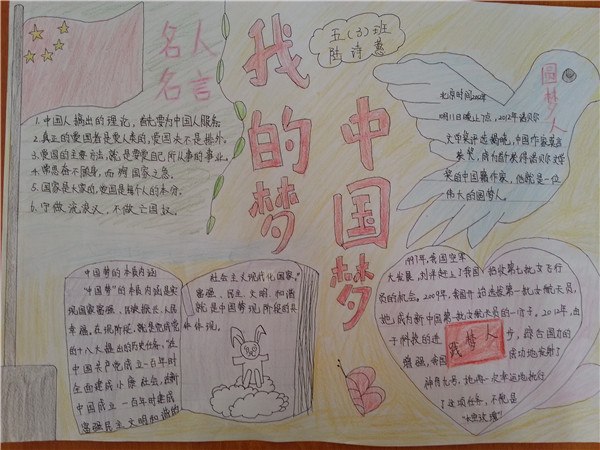 名人
名言
1.中国人搞出的理论,首先要为中国人服务
2.真正的爱国者是爱人类的,爱国决不是排外。
3.爱国的主要方法,就是要爱自己所从事的事业。
4.常思奋不顾身,而殉国家之急。
5.国家是大家的,爱国是每个人的本分。
6.宁做流浪汉,不做亡国奴。
我的梦
中国梦
五(3)班
陆诗慧
圆梦人
北京时间2012年
10月11日晚上7点,2012年诺贝尔
文学奖评选揭晓,中国作家莫言
获奖,成为首个获得诺贝尔文学
奖的中国籍作家,他就是一位
伟大的圆梦人。
中国梦的本质内涵
"中国梦"的本质内涵是实
现国家富强、民族振兴、人民
幸福,在现阶段,就是党成党
的十八大提出的历史任务,"在
中国共产党成立一百年时
全面建成小康社会,在新
中国成立一百年时建成
富强民主文明和谐的
社会主义现代化国家。"
富强、民主、文明、和谐
就是中国梦现阶段的具
体体现。
1997年,我国空军
大发展,刘洋赶上了我国招收第七批女飞行
员的机会。2009年,我国开始选拔第一批女航天员,
她成为新中国第一批女航天员的一份子,2012年,由
于科技的进步,综合国力的
增强,我国成功地发射了
践梦人
神舟九号,她再一次幸运地执行
了这项任务,不愧是